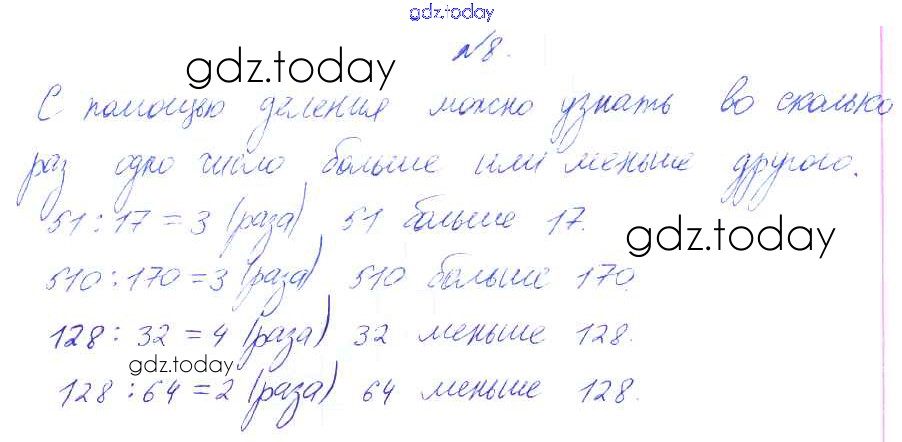 gdz.today
№8.
gdz.today
С помощью деления можно узнать во сколько
раз одно число больше или меньше другого.
51 : 17 = 3 (раза) 51 больше 17.
gdz.today
510 : 170 = 3 (раза) 510 больше 170.
128 : 32 = 4 (раза) 32 меньше 128.
gdz.today
128 : 64 = 2 (раза) 64 меньше 128.